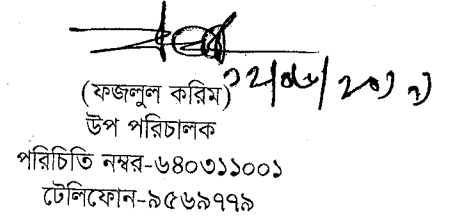 (ফজলুল করিম)
উপ পরিচালক
পরিচিতি নম্বর-৬৪০৩১১০০১
টেলিফোন-৯৫৬৯৭৭৯